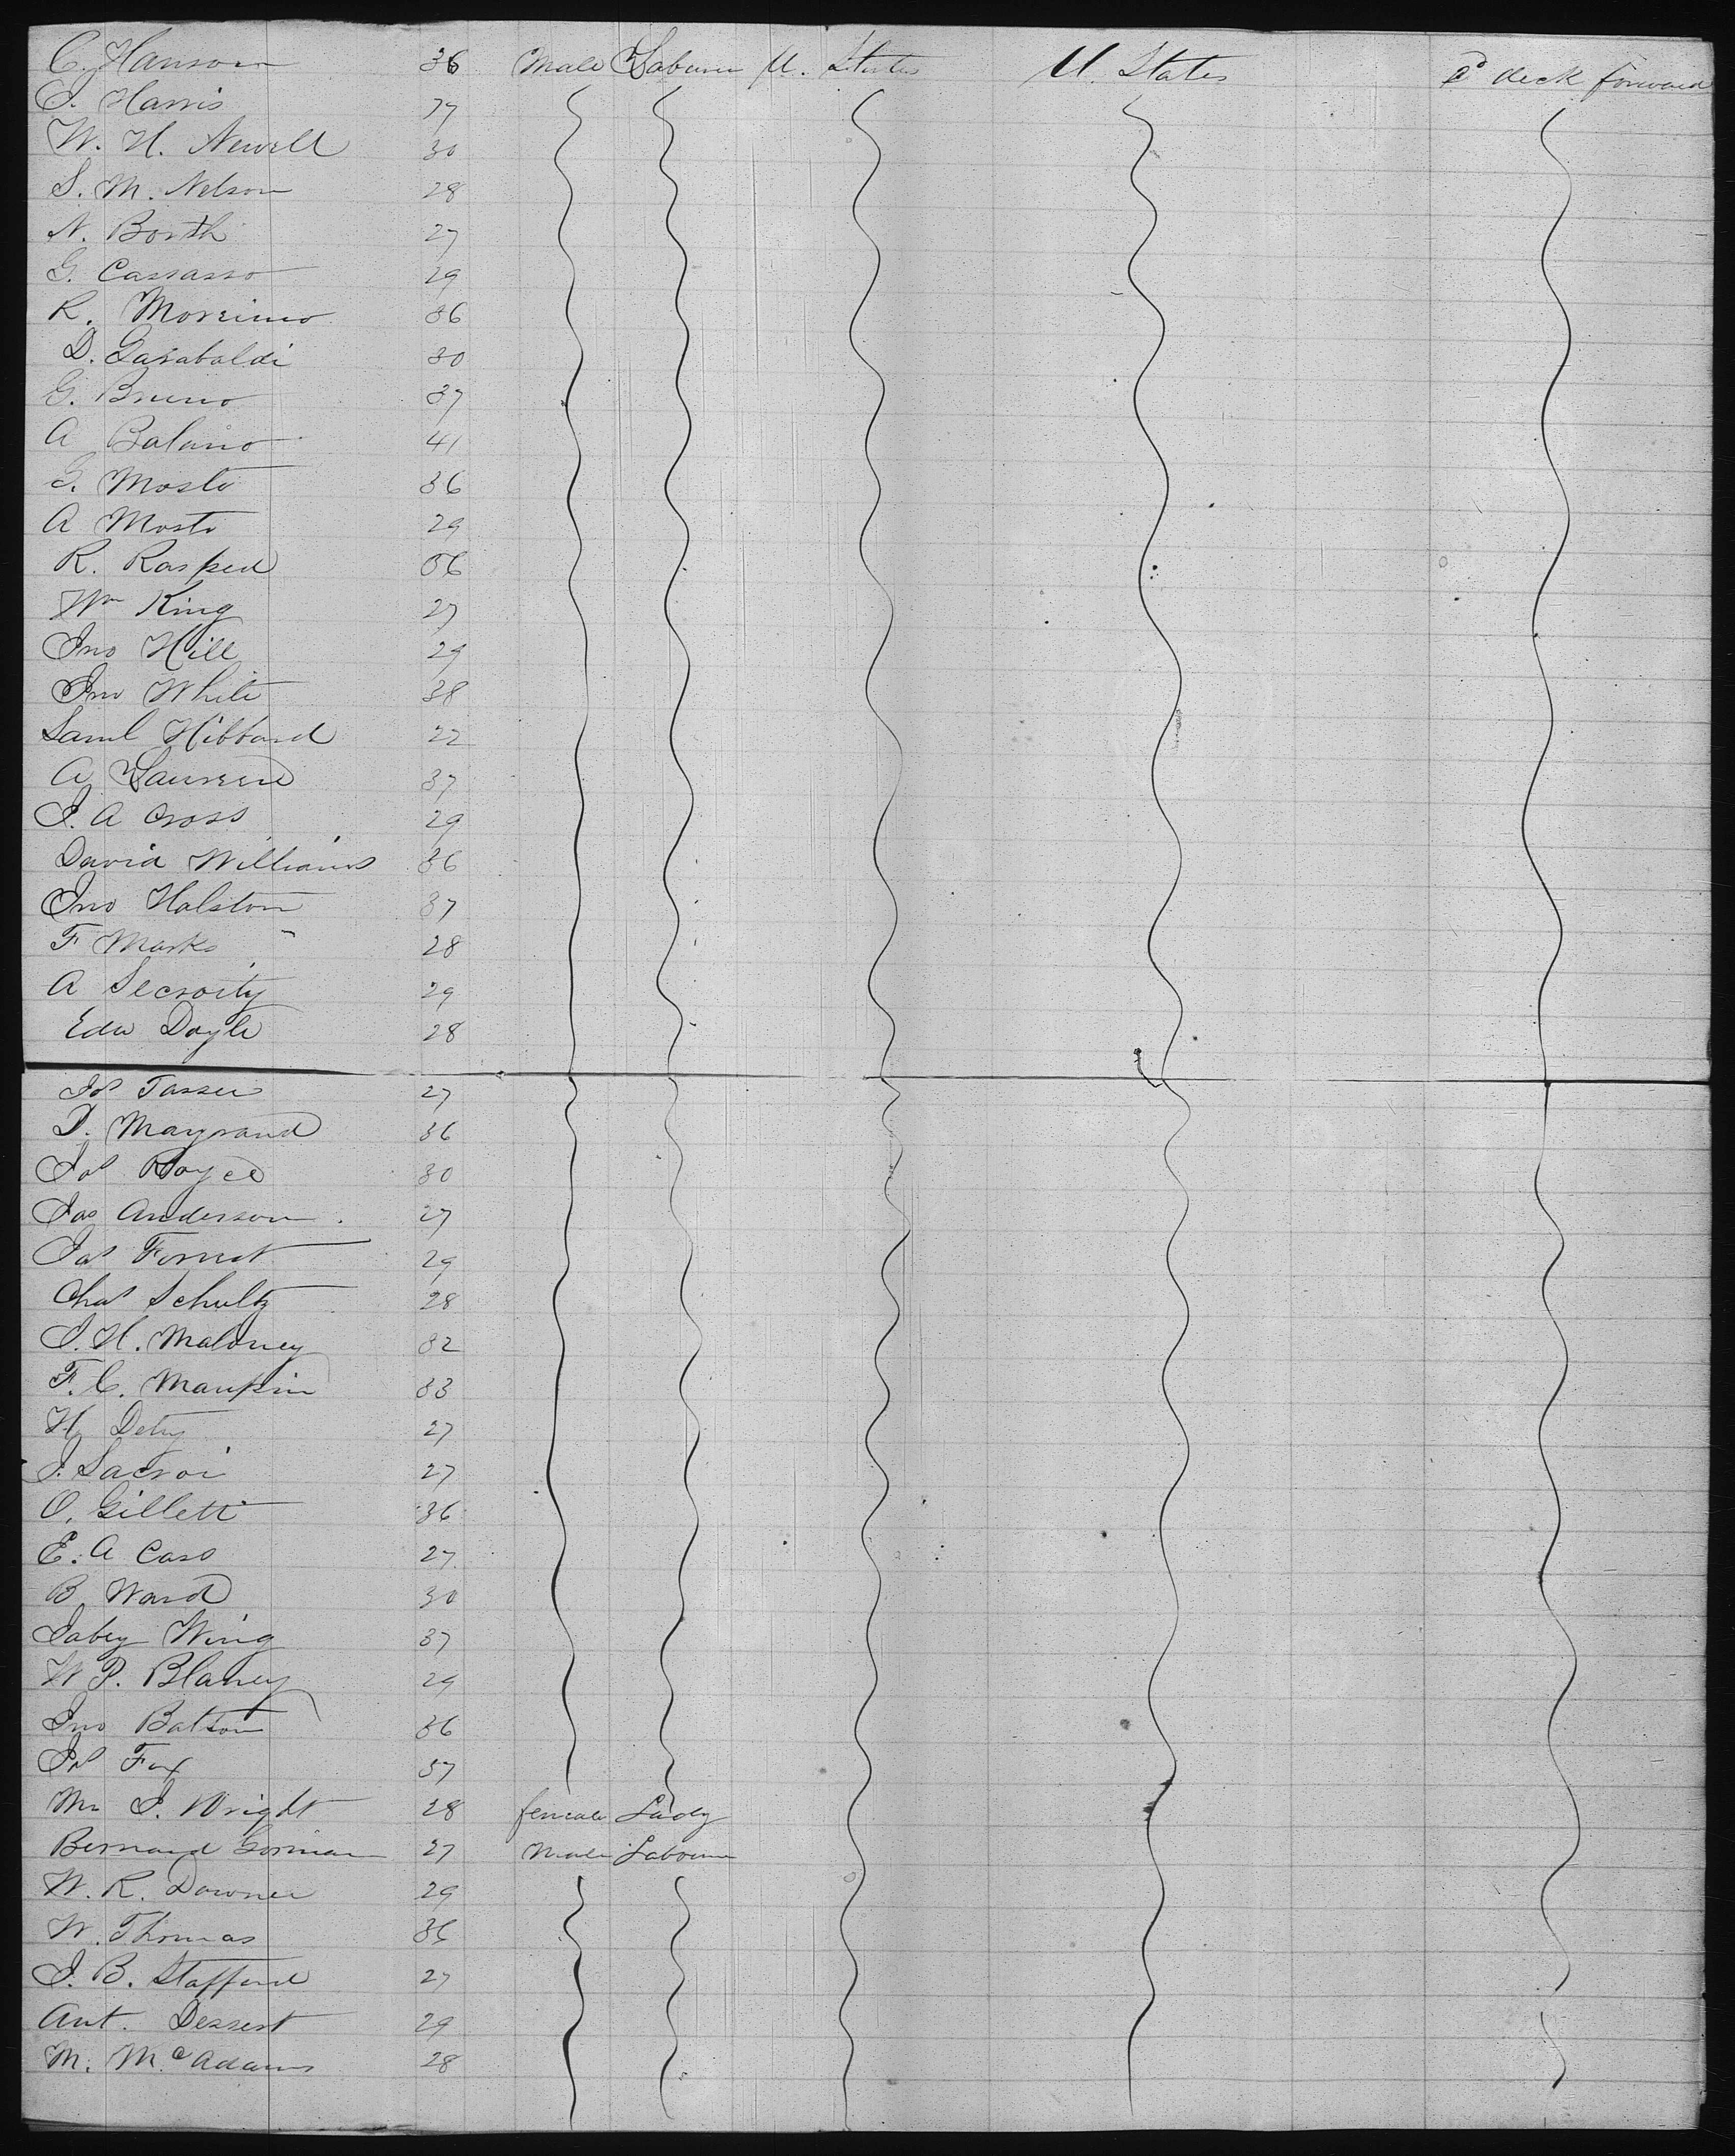 C. Hanson 36 Male Labourer U. States U. States 2d deck forward
J. Harris 37
W. H. Newell 30
S. M. Nelson 28
N. Borth 27
G. Cassasso 29
R. 36
D. Garabaldi 30
G. Bruno 37
A Balano 41
G. Mosto 36
A Mosto 29
R. Rasped 36
Wm King 27
Jno Hill 29
Jno White 38
Saml Hibbard 22
A 37
J. A Cross 29
David Williams 36
Jno Halston 37
F Marks 28
A Secroity 29
Edw Doyle 28
Jos Tasser 27
D. Maynard 36
Jos Royce 30
Jas Anderson 27
Jas Forrest 29
Chas Schultz 28
J. H. Maloney 32
F. C. Maupin 33
H. Dety 27
J. Lacroi 27
O. Gillett 36
E. A Cass 27
B Ward 30
Jabez Wing 37
W P. Blaney 29
Jno Batson 36
Js Fox 37
Mrs J. Wright 28 female Lady
Bernard Gorman 27 Male Labourer
W. R. Downer 29
W. Thomas 36
J. B. Stafford 27
Ant. Dessert 29
M. McAdams 28